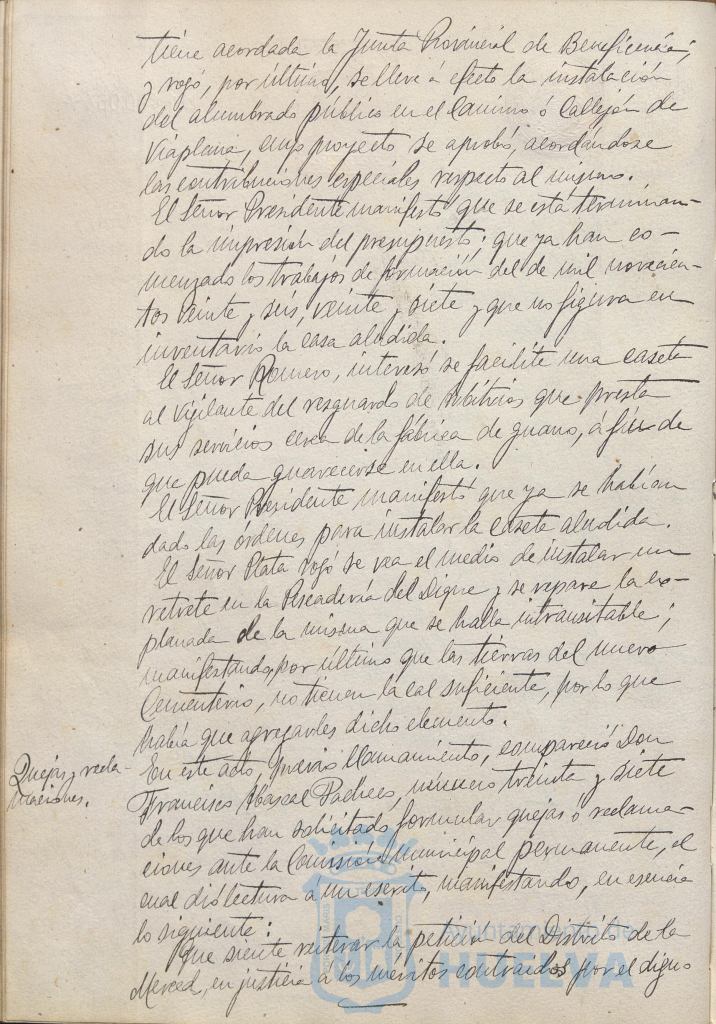 tiene acordada la Junta Provincial de Beneficencia;
y rogó, por último, se lleve á efecto la instalación
del alumbrado público en el Camino ó Callejón de
Viaplana, cuyo proyecto se aprobó, acordándose
las contribuciones especiales respecto al mismo.
El Señor Presidente manifestó que se está terminan-
do la impresión del presupuesto; que ya han co-
menzado los trabajos de formación del de mil novecien-
tos veinte y seis, veinte y siete y que no figura en
inventario la casa aludida.
El Señor Romero, interesó se facilite una caseta
al vigilante del resguardo de arbitrios que presta
sus servicios cerca de la fábrica de guano, á fin de
que pueda guarecerse en ella.
El Señor Presidente manifestó que ya se habían
dado las órdenes para instalar la caseta aludida.
El Señor Plata rogó se vea el medio de instalar un
retrete en la Pescadería del Dique y se repare la ex-
planada de la misma que se halla intransitable;
manifestando, por último que las tierras del nuevo
Cementerio, no tienen la cal suficiente, por lo que
habría que agregarles dicho elemento.
Quejas y recla-
maciones.
En este acto, previo llamamiento, compareció Don
Francisco Abascal Pacheco, número treinta y siete
de los que han solicitado formular quejas ó reclama-
ciones ante la Comisión municipal permanente, el
cual dió lectura a un escrito, manifestando, en esencia
lo siguiente:
Que siente reiterar la petición del Distrito de la
Merced, en justicia a los méritos contraídos por el digno
Ayuntamiento de
HUELVA